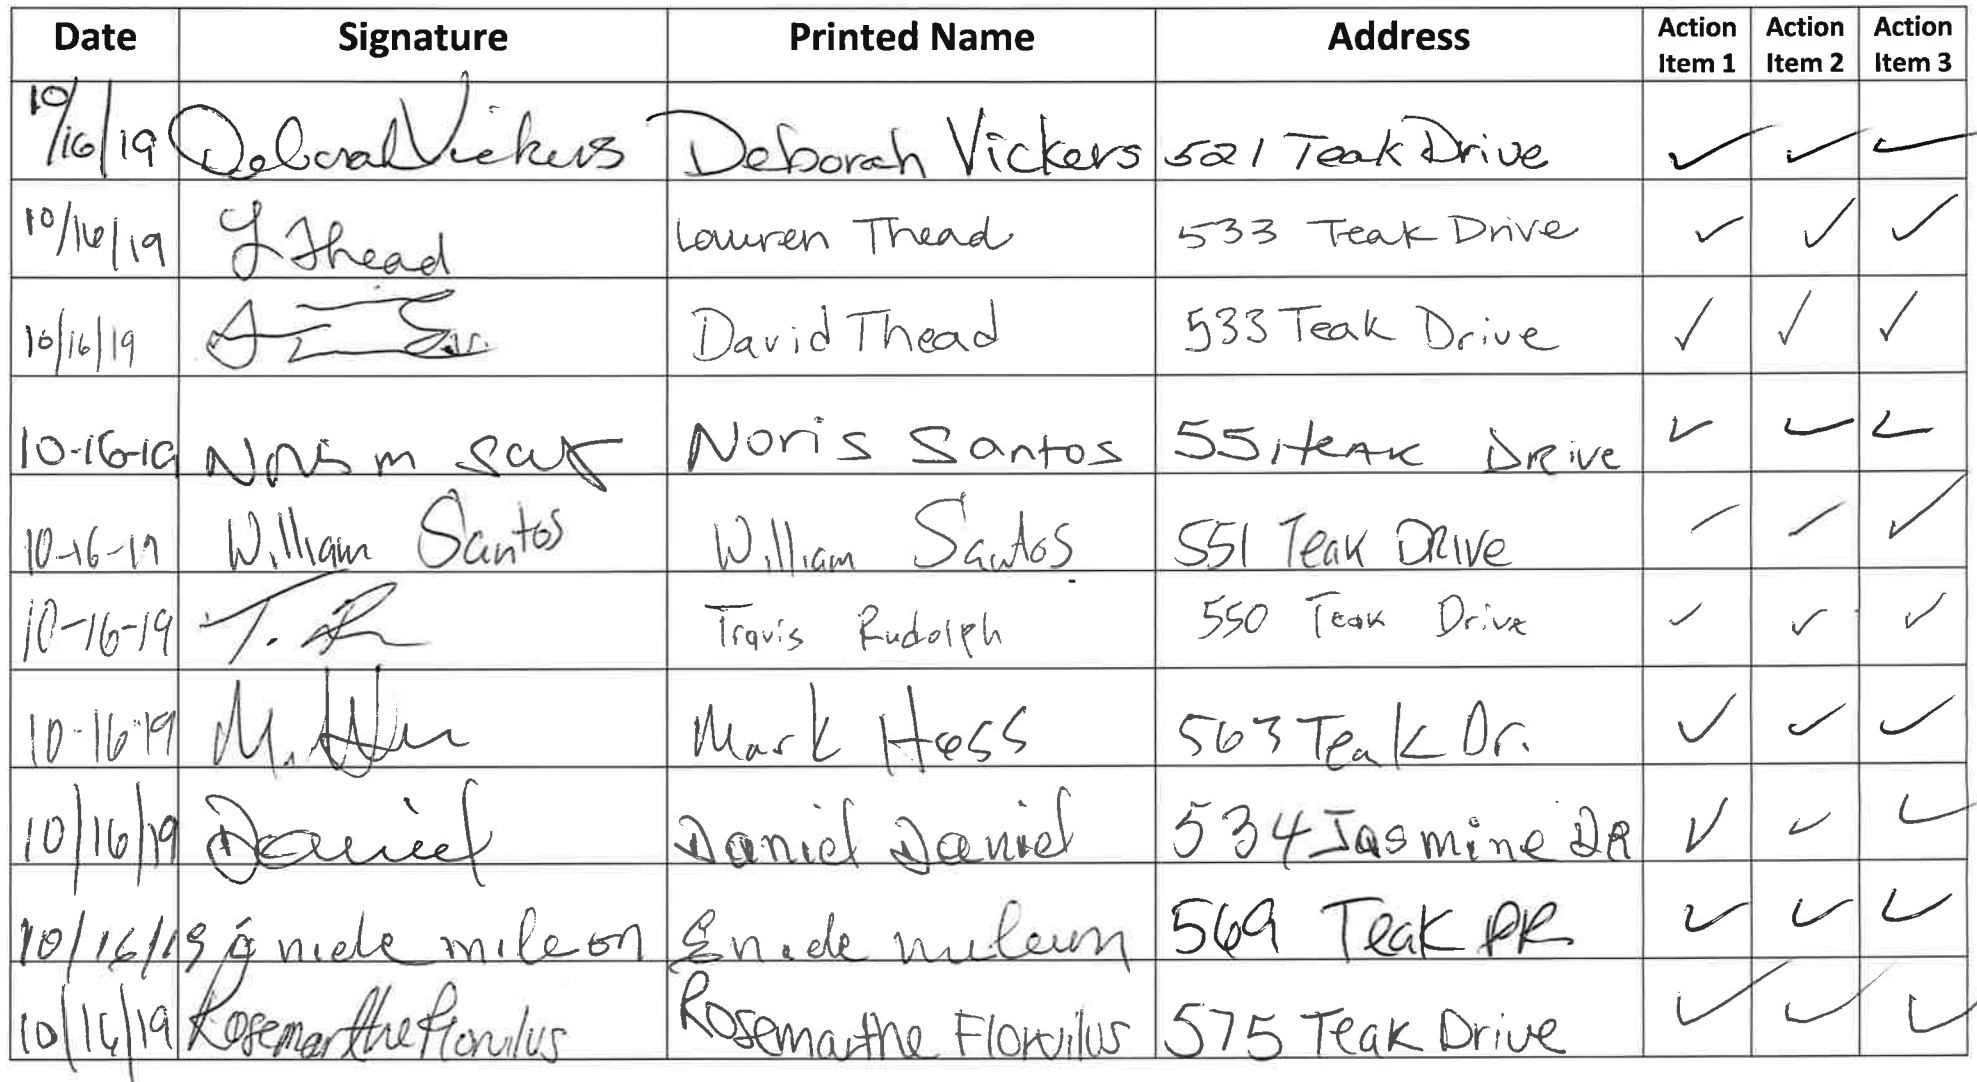 Date Signature Printed Name Address Action Item 1 Action Item 2 Action Item 3
10/16/19 Deborah Vickers Deborah Vickers 521 Teak Drive ✓ ✓ ✓
10/16/19 L Thead Lauren Thead 533 Teak Drive ✓ ✓ ✓
10/16/19 David Thead 533 Teak Drive ✓ ✓ ✓
10-16-19 Noris m Noris Santos 551 TEAK DRive ✓ ✓ ✓
10-16-19 William Santos William Santos 551 Teak DRIVE ✓ ✓ ✓
10-16-19 T. Travis Rudolph 550 Teak Drive ✓ ✓ ✓
10-16-19 M. Mark Hess 563 Teak Dr. ✓ ✓ ✓
10/16/19 Daniel Daniel Daniel 534 Jasmine DR ✓ ✓ ✓
10/16/19 569 Teak DR ✓ ✓ ✓
10/16/19 Rosemarthe Florvilus Rosemarthe Florvilus 575 Teak Drive ✓ ✓ ✓